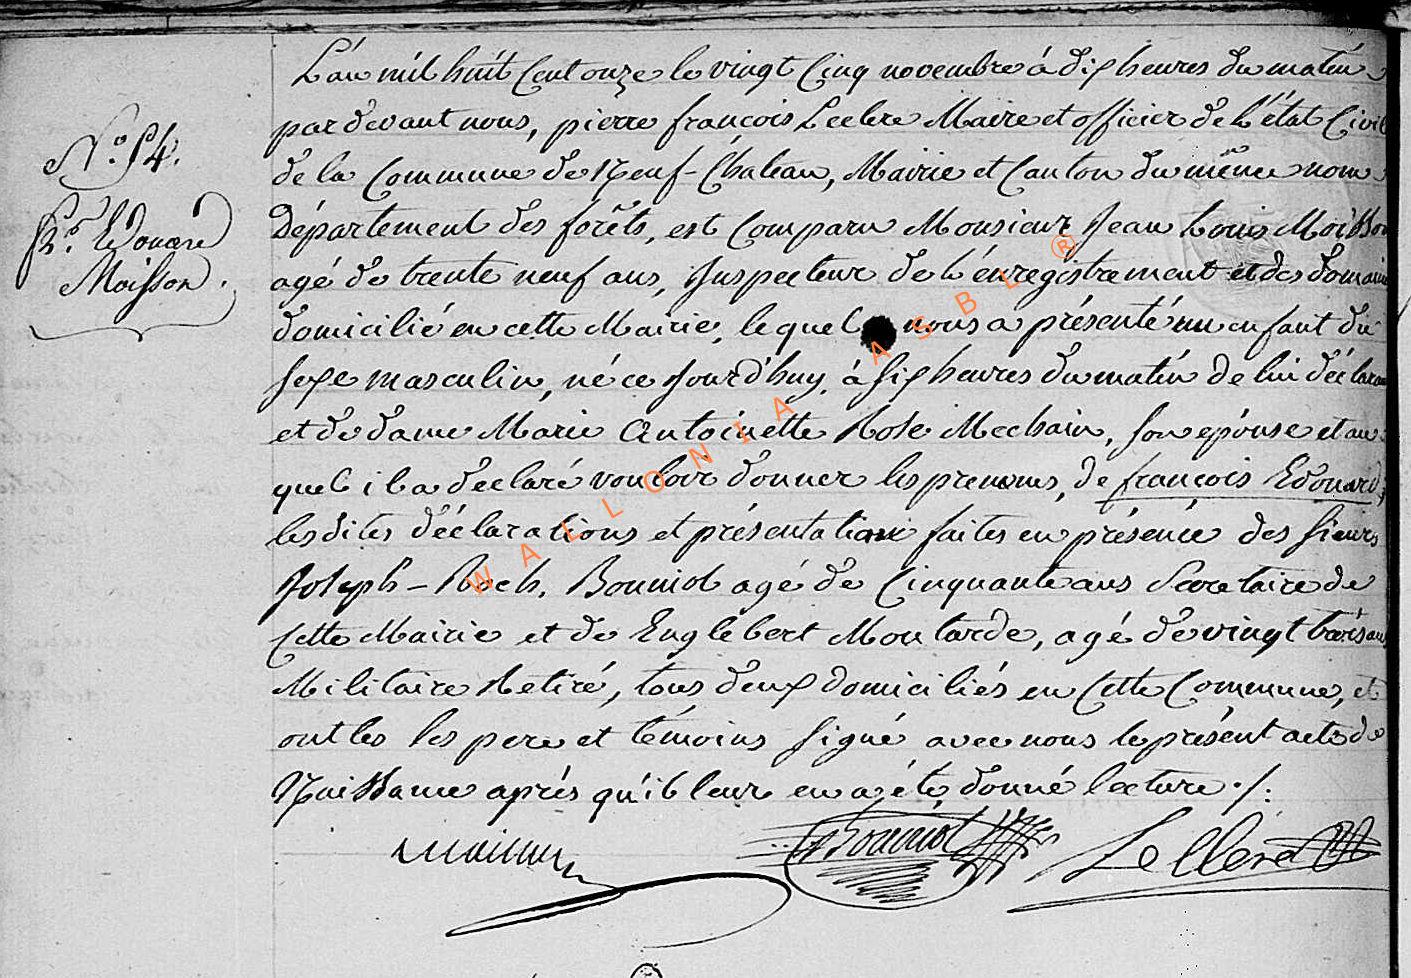 L'an mil huit Cent onze le vingt Cinq novembre á dix heures du matin
pardevant nous, pierre françois Leclere Maire et officier de L'état Civil
N.º 54.
de la Commune de Neuf-Château, Mairie et Canton du même nom
Département des forêts, est Comparu Monsieur Jean Louis Moisson
f.ˢ Edouard
Moisson.
agé de trente neuf ans, Inspecteur de L'énregistrement et des domaine
domicilié en cette Mairie, lequel nous a présenté un enfant du
sexe masculin, né ce Jourd'huy, á six heures du matin de lui déclarant
et de dame Marie Antoinette Rose Mechain, son epouse et au
quel il a déclaré vouloir donner les prenoms, de françois Edouard,
lesdites déclarations et présentation faites en présence des sieurs
Joseph-Roch, Bouniol agé de Cinquante ans Secretaire de
Cette Mairie et de Englebert Moutarde, agé de vingt trois ans
Militaire Retiré, tous deux domiciliés en Cette Commune, et
ont les les pere et témoins signé avec nous le présent acte de
Naissance aprés qu'il leur en a été donné lecture ./.
Moisson Bouniol Leclere
WALLONIA ASBL ®